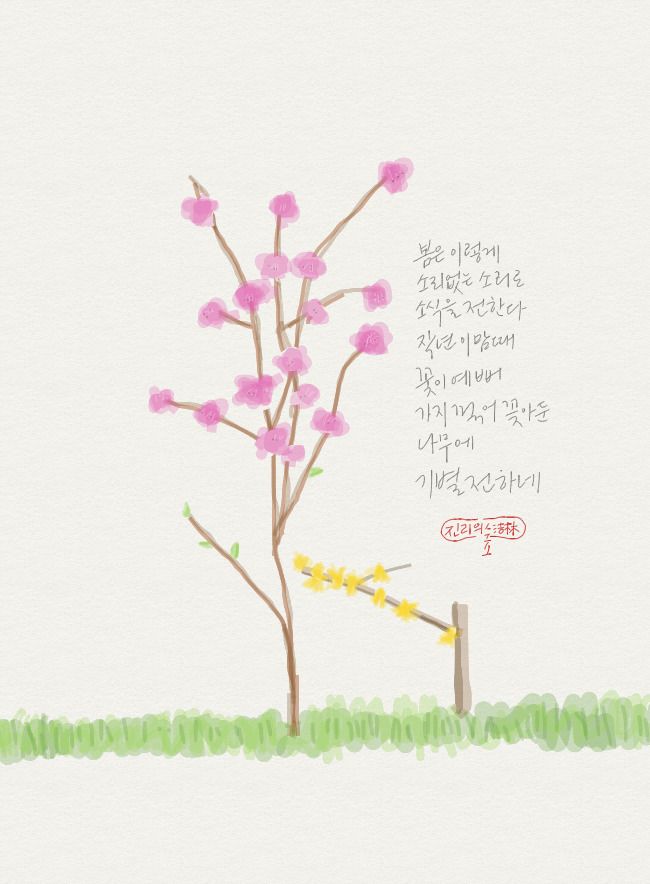 봄은 이렇게
소리없는 소리로
소식을 전한다
작년 이맘때
꽃이 예뻐
가지 꺾어 꽂아둔
나무에
기별 전하네
진리의